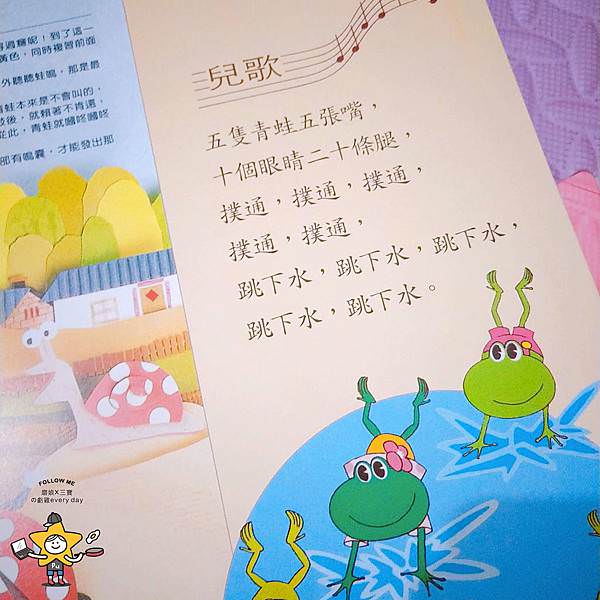 得過癮呢！到了這一
黃色，同時複習前面
外聽聽蛙鳴，那是最
青蛙本來是不會叫的，
後，就賴著不肯還，
從此，青蛙就嘓咚嘓咚
部有鳴囊，才能發出那
兒歌
五隻青蛙五張嘴，
十個眼睛二十條腿，
撲通，撲通，撲通，
撲通，撲通，
跳下水，跳下水，跳下水，
跳下水，跳下水。
FOLLOW ME
X三寶
の every day
Pu